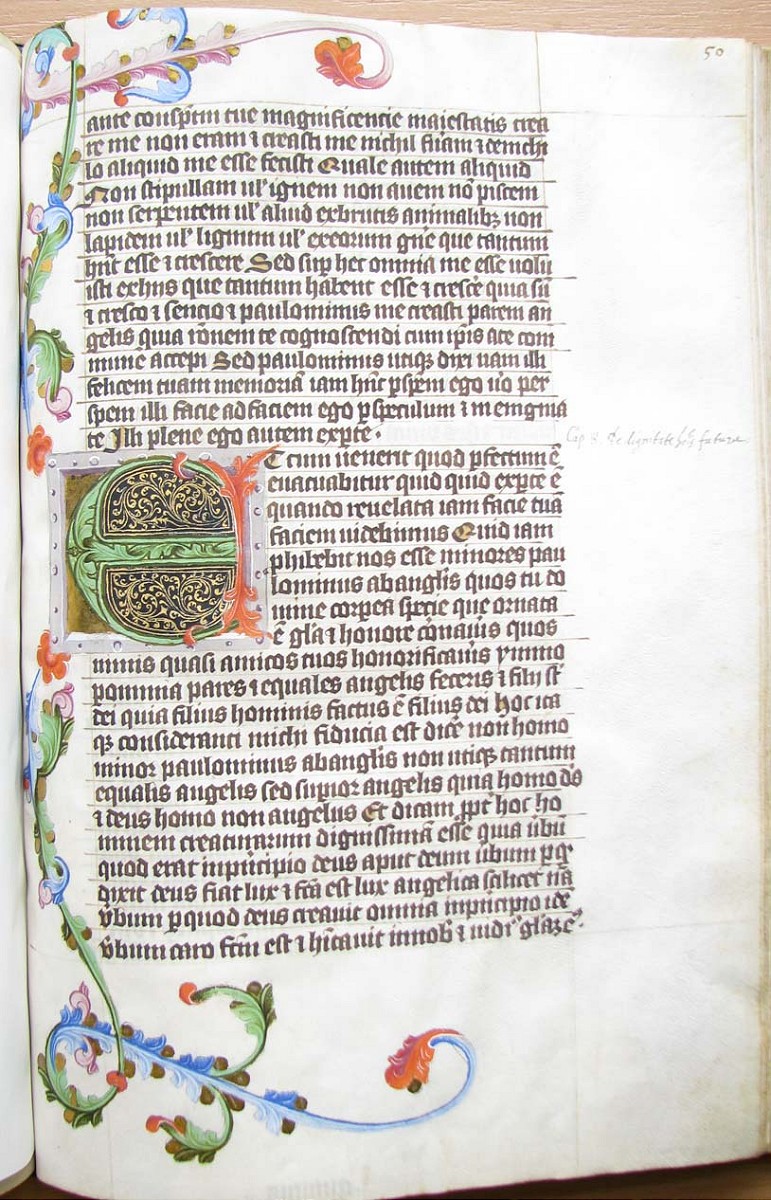 50
ante conspm tue magnificencie maiestatis crea
re me non eram ⁊ creasti me nichil fuam ⁊ de nichi
lo aliquid me esse fecisti Quale autem aliquid
Non stipullam ul' ignem non auem nō piscem
non serpentem ul' aliud exbrutis animalibꝫ non
lapidem ul' lignum ul' exeorum gn̄e que tantum
hn̄t esse ⁊ crescere Sed sup hec omnia me esse uolu
isti exhiis que tantum habent esse ⁊ cresc̄e quia sū
⁊ cresco ⁊ sencio ⁊ paulominus me creasti parem an
gelis quia rōnem te cognoscendi cum ip̄is a te com
mune accepi Sed paulominus utiqꝫ dixi nam illi
felicem tuam memoriā iam hn̄t ꝑspem ego u̓o per
spem illi facie ad faciem ego ꝑspeculum ⁊ in enigma
te Illi plene ego autem exꝑte
Cap 8. De dignitate hōīs futura
Et cum uenerit quod ꝑfectum ē
euacuabitur quid quid exꝑte ē
quando reuelata iam facie tuā
faciem uidebimus Quid iam
phibebit nos esse minores pau
lominus abangl̄is quos tu do
mine corpea specie que ornata
ē gl̄a ⁊ honore cōnauis quos
nimis quasi amicos tuos honorificauis ymmo
pomnia pares ⁊ equales angelis feceris ⁊ filii st̄
dei quia filius hominis factus ē filius dei hoc ita
qꝫ consideranti michi fiducia est dic̄e non homo
minor paulominus abangl̄is non utiqꝫ tantum
equalis angelis sed supior angelis quia homo d̄s
⁊ deus homo non angelus Et dicam ppt̄ hoc ho
minem creaturarum dignissimā esse quia ūbū
quod erat inpncipio deus aput deum ūbum ꝑ qͦ
dixit deus fiat lux ⁊ fc̄a est lux angelica salicet nā
ūbum ꝑquod deus creauit omnia inpncipio idē
ūbum caro fc̄m est ⁊ hītauit innob̄ ⁊ uidiꝰ gl̄aꝫ eꝰ